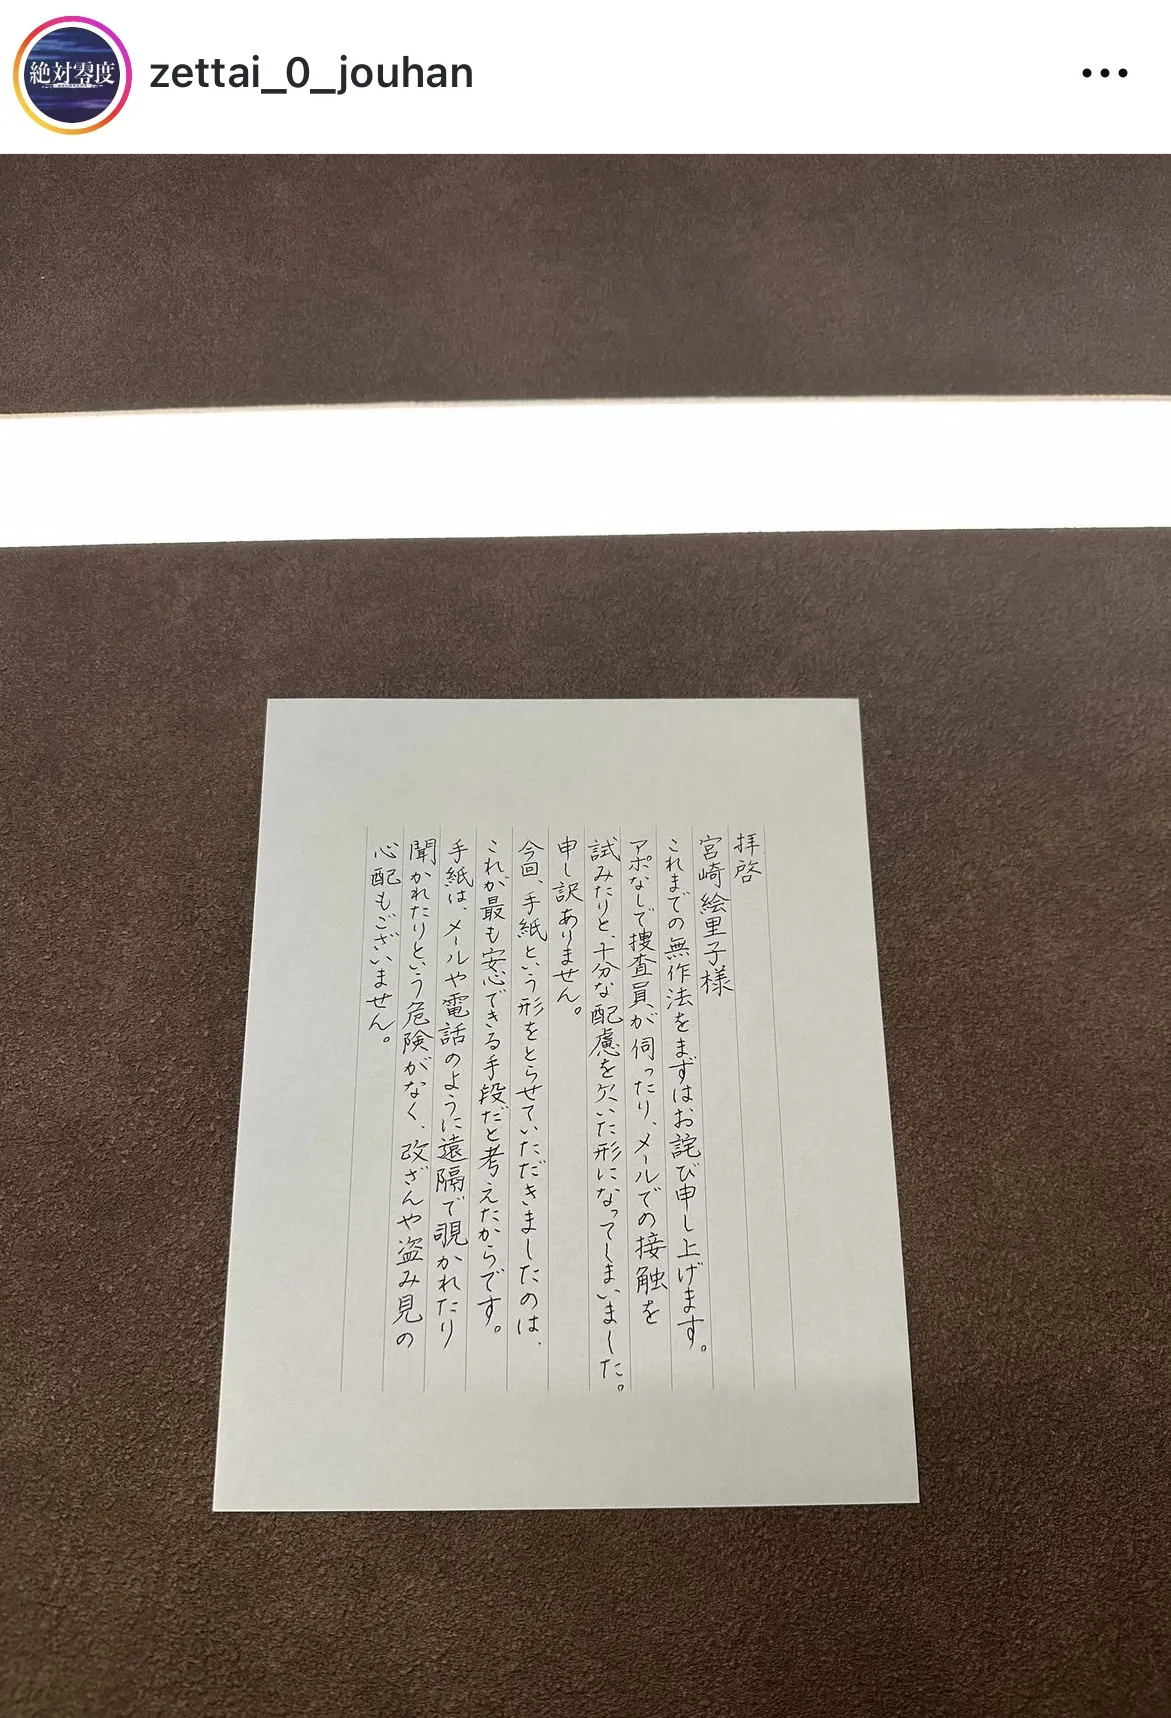 絶対零度
zettai_0_jouhan
拝啓
宮崎絵里子様
これまでの無作法をまずはお詫び申し上げます。
アポなしで捜査員が伺ったり、メールでの接触を
試みたりと、十分な配慮を欠いた形になってしまいました。
申し訳ありません。
今回、手紙という形をとらせていただきましたのは、
これが最も安心できる手段だと考えたからです。
手紙は、メールや電話のように遠隔で覗かれたり
聞かれたりという危険がなく、改ざんや盗み見の
心配もございません。